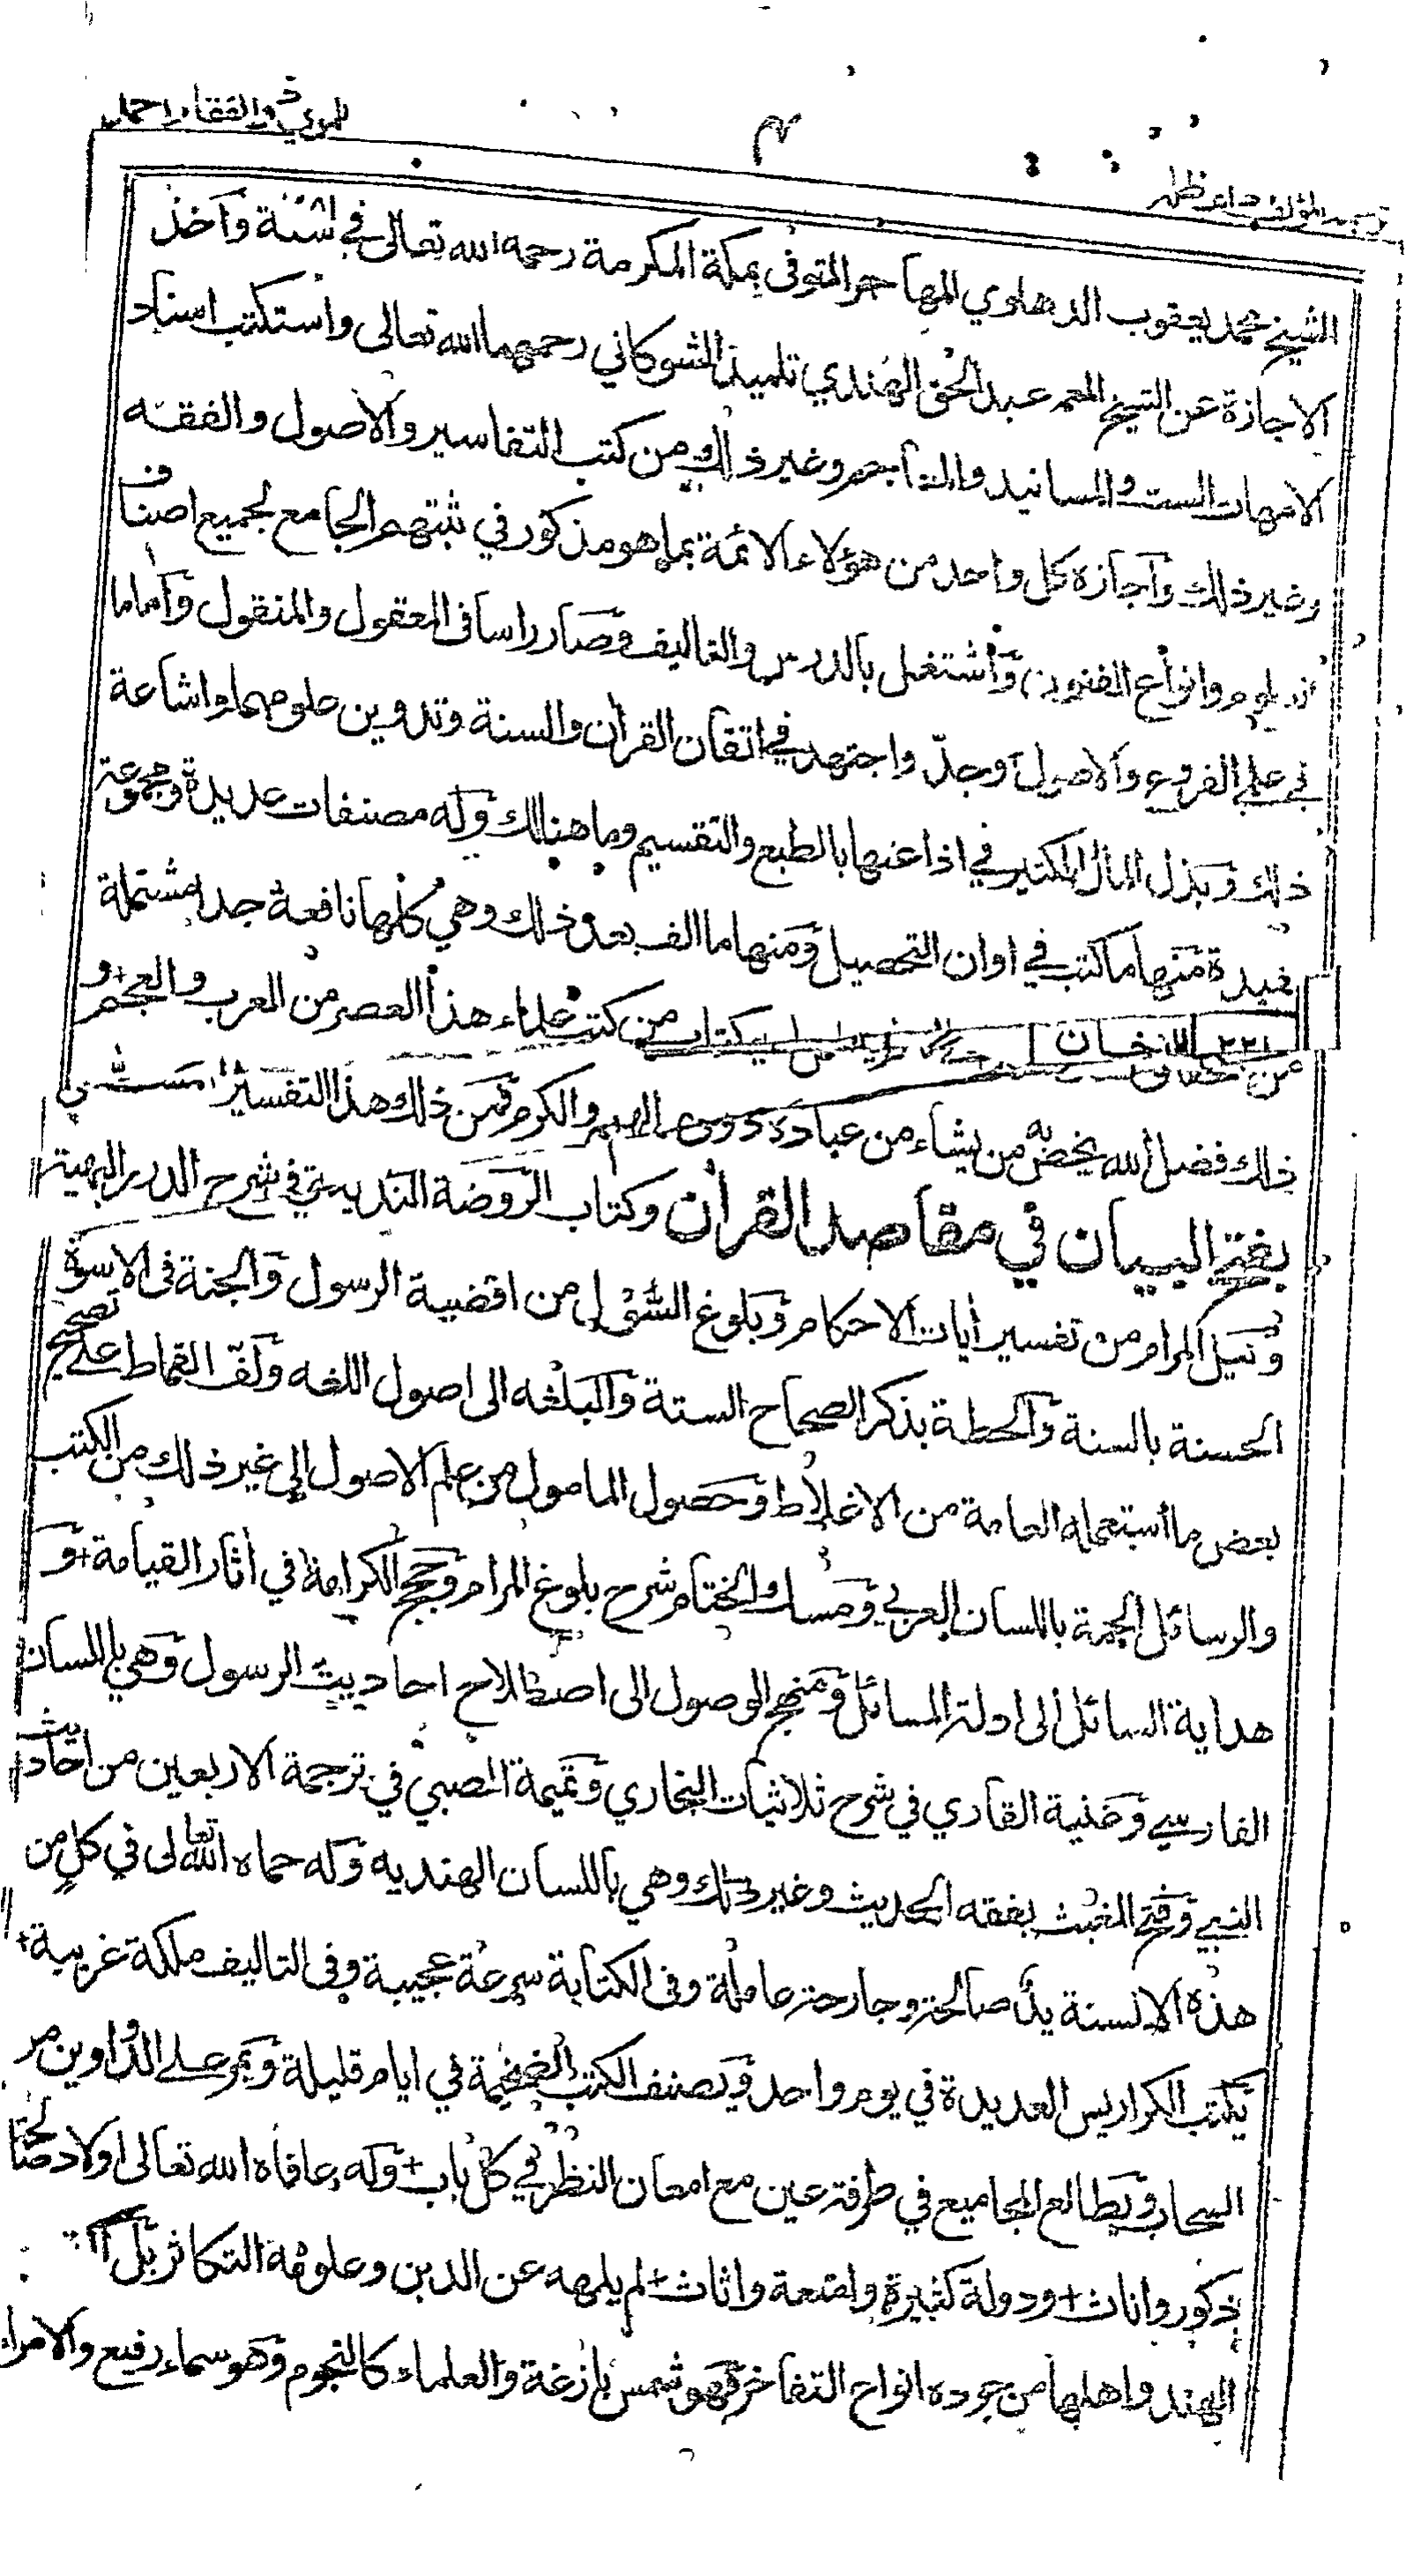 ترجمة المؤلف دام ظله
٤
للمولوي ذو الفقار احمد
الشيخ محمد يعقوب الدهلوي المهاجر المتوفى بمكة المكرمة رحمه الله تعالى في سنة وآخذ
الاجازة عن الشيخ المعمر عبد الحق الهندي تلميذ الشوكاني رحمهما الله تعالى واستكتب اسناد
الامهات الست والمسانيد والمعاجم وغير ذلك من كتب التفاسير والاصول والفقه
وغير ذلك وآجازه كل واحد من هؤلاء الائمة بما هو مذكور في ثبتهم الجامع لجميع اصناف
العلوم وانواع الفنون وآشتغل بالدرس والتاليف وصار راسا في المعقول والمنقول وآماما
في علمي الفروع والاصول وجدّ واجتهد في اتقان القرآن والسنة وتدوين علومهما واشاعة
ذلك وبذل المال الكثير في اذاعتها بالطبع والتقسيم وما هنالك وله مصنفات عديدة ومجموعة
مفيدة منها ما كتب في اوان التحصيل ومنها ما الف بعد ذلك وهي كلها نافعة جدا مشتملة
كتاب من كتب علماء هذا العصر من العرب والعجم + و
ذلك فضل الله يخص به من يشاء من عباده ذوي الهمم والكرم فمن ذلك هذا التفسير المسمى
بفتح البيان في مقاصد القرآن وكتاب الروضة الندية في شرح الدرر البهية
ونيل المرام من تفسير آيات الاحكام وبلوغ السّول من اقضية الرسول والجنة في الاسوة
الحسنة بالسنة والحطة بذكر الصحاح الستة والبلغه الى اصول اللغه ولفّ القماط على تصحيح
بعض ما استعمله العامة من الاغلاط وحصول المامول من علم الاصول الى غير ذلك من الكتب
والرسائل الجمة باللسان العربي ومسك الختام شرح بلوغ المرام وحجج الكرامة في آثار القيامة + و
هداية السائل الى ادلة المسائل ومنهج الوصول الى اصطلاح احاديث الرسول وهي باللسان
الفارسي وغنية القاري في شرح ثلاثيات البخاري وتميمة الصبي في ترجمة الاربعين من احاديث
النبي وفتح المغيث بفقه الحديث وغير ذلك وهي باللسان الهنديه وله حماه الله تعالى في كل من
هذه الالسنة يد صالحة وجارحة عاملة وفي الكتابة سرعة عجيبة وفي التاليف ملكة غريبة +
يكتب الكراريس العديدة في يوم واحد ويصنف الكتب الضخيمة في ايام قليلة ويمر على الدواوين مر
السحاب ويطالع المجاميع في طرفة عين مع امعان النظر في كل باب + وله عافاه الله تعالى اولاد صالحة
ذكور واناث + ودولة كثيرة وامتعة واثاث + لم يلهه عن الدين وعلومه التكاثر بل
الهند واهلها من جوده انواح التفاخر فهو شمس بازغة والعلماء كالنجوم وهو سماء رفيع والامراء